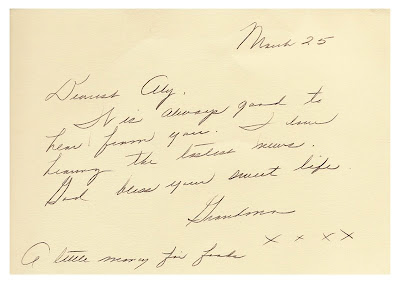 March 25
Dearest Aly.
It is always good to
hear from you. I love
hearing the lastest news.
God bless your sweet life.
Grandma
x x x x
A little money for